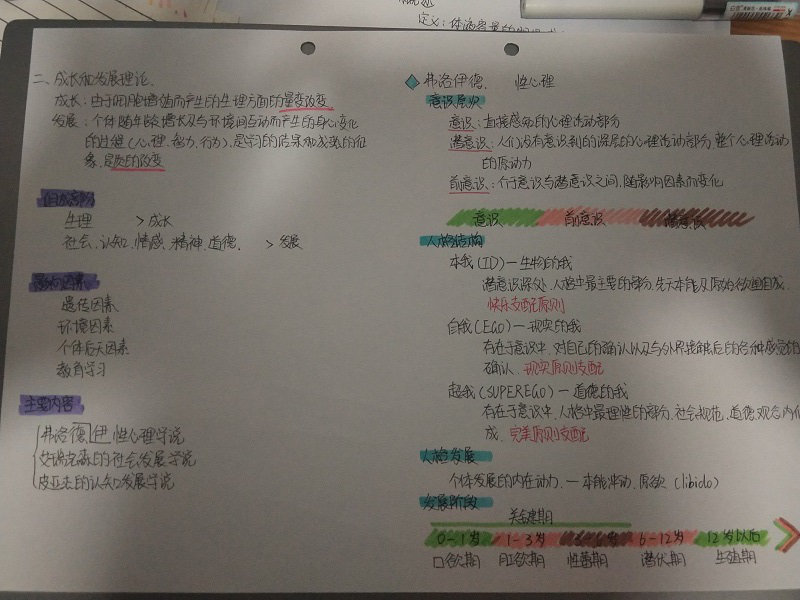 定义：体液容量的
二、成长和发展理论、
成长：由于细胞增值而产生的生理方面的量变改变
发展：个体随年龄增长及与环境间互动而产生的身心变化
的过程(心理、智力、行为)，是学习的结果和成熟的征
象，是质的改变
组成部分
生理 >成长
社会、认知、情感、精神、道德、 >发展
影响因素
遗传因素
环境因素
个体后天因素
教育学习
主要内容
弗洛德伊性心理学说
艾瑞克森的社会发展学说
皮亚杰的认知发展学说
弗洛伊德、 性心理
意识层次
意识：直接感知的心理活动部分
潜意识：人们没有意识到的深层的心理活动部分，整个心理活动
的原动力
前意识：介于意识与潜意识之间，随影响因素而变化
意识 前意识 潜意识
人格结构
本我(ID)—生物的我
潜意识深处、人格中最主要的部分，先天本能及原始欲望组成、
快乐支配原则
自我(EGO)—现实的我
存在于意识中，对自己的确认以及与外界接触后的各种感觉的
确认、现实原则支配
超我(SUPEREGO)—道德的我
存在于意识中，人格中最理性的部分，社会规范、道德观念内化
成、完美原则支配
人格发展
个体发展的内在动力、—本能冲动、原欲(libido)
发展阶段
关键期
0-1岁 1-3岁 3-6岁 6-12岁 12岁以后
口欲期 肛欲期 性蕾期 潜伏期 生殖期